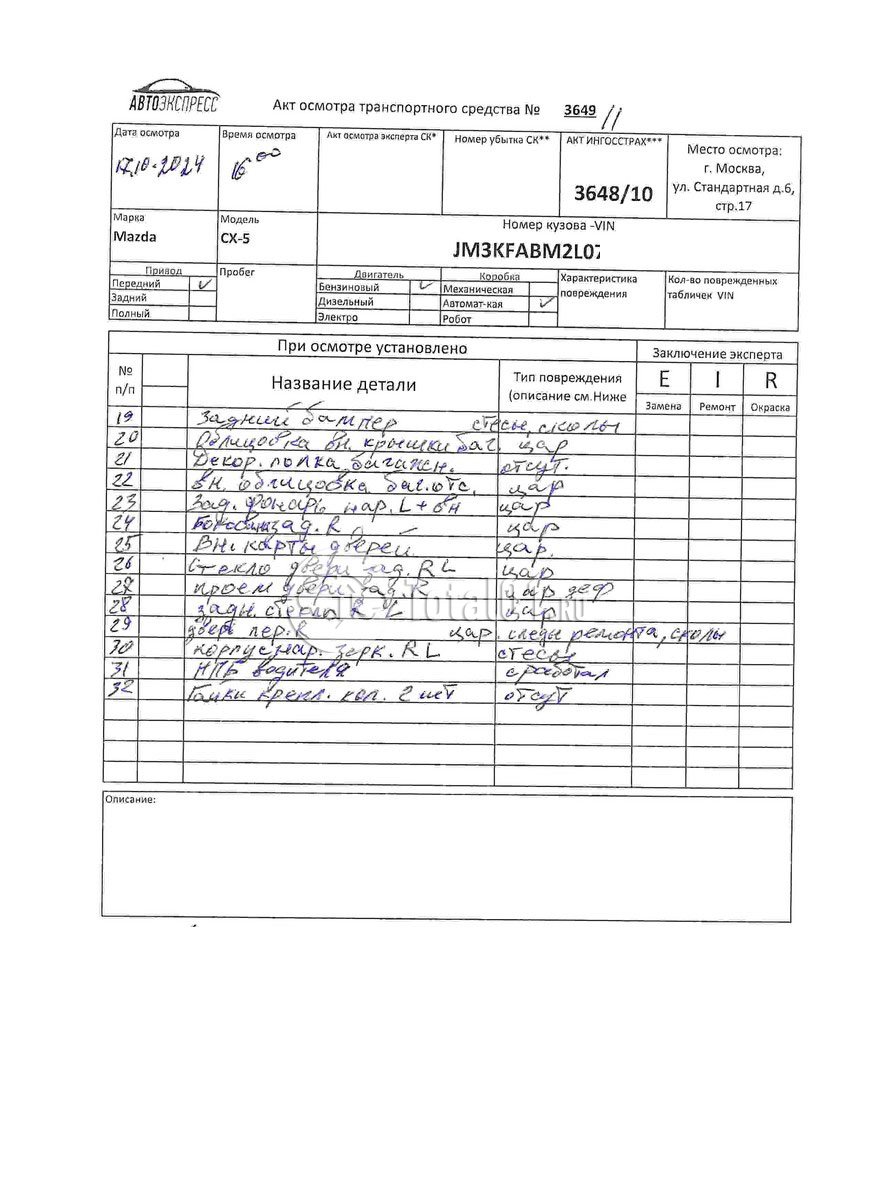 АВТОЭКСПРЕСС
Акт осмотра транспортного средства № 3649/11
Дата осмотра
17.10.2024
Время осмотра
16 00
Акт осмотра эксперта СК*
Номер убытка СК**
АКТ ИНГОССТРАХ***
3648/10
Место осмотра:
г. Москва,
ул. Стандартная д.6,
стр.17
Марка
Mazda
Модель
CX-5
Номер кузова -VIN
JM3KFABM2L07
Привод
Передний ✓
Задний
Полный
Пробег
Двигатель
Бензиновый ✓
Дизельный
Электро
Коробка
Механическая
Автомат-кая ✓
Робот
Характеристика
повреждения
Кол-во поврежденных
табличек VIN
При осмотре установлено
Заключение эксперта
№
п/п
Название детали
Тип повреждения
(описание см.Ниже
E I R
Замена Ремонт Окраска
19 Задний бампер стесы, сколы
20 Облицовка вн. крышки баг. цар
21 Декор. полка багажн. отсут.
22 вн. облицовка баг. отс. цар
23 Зад. фонарь нар. L + вн цар
24 зад. R цар
25 Вн. карты дверей цар.
26 Стекло двери зад. RL цар
27 проем двери зад. R цар деф
28 задн. стекло R L цар
29 дверь пер. R цар. следы ремонта, сколы
30 корпус нар. зерк. RL стесы
31 НПБ водителя сработал
32 Гайки крепл. кол. 2 шт отсут
Total01.RU
Описание: